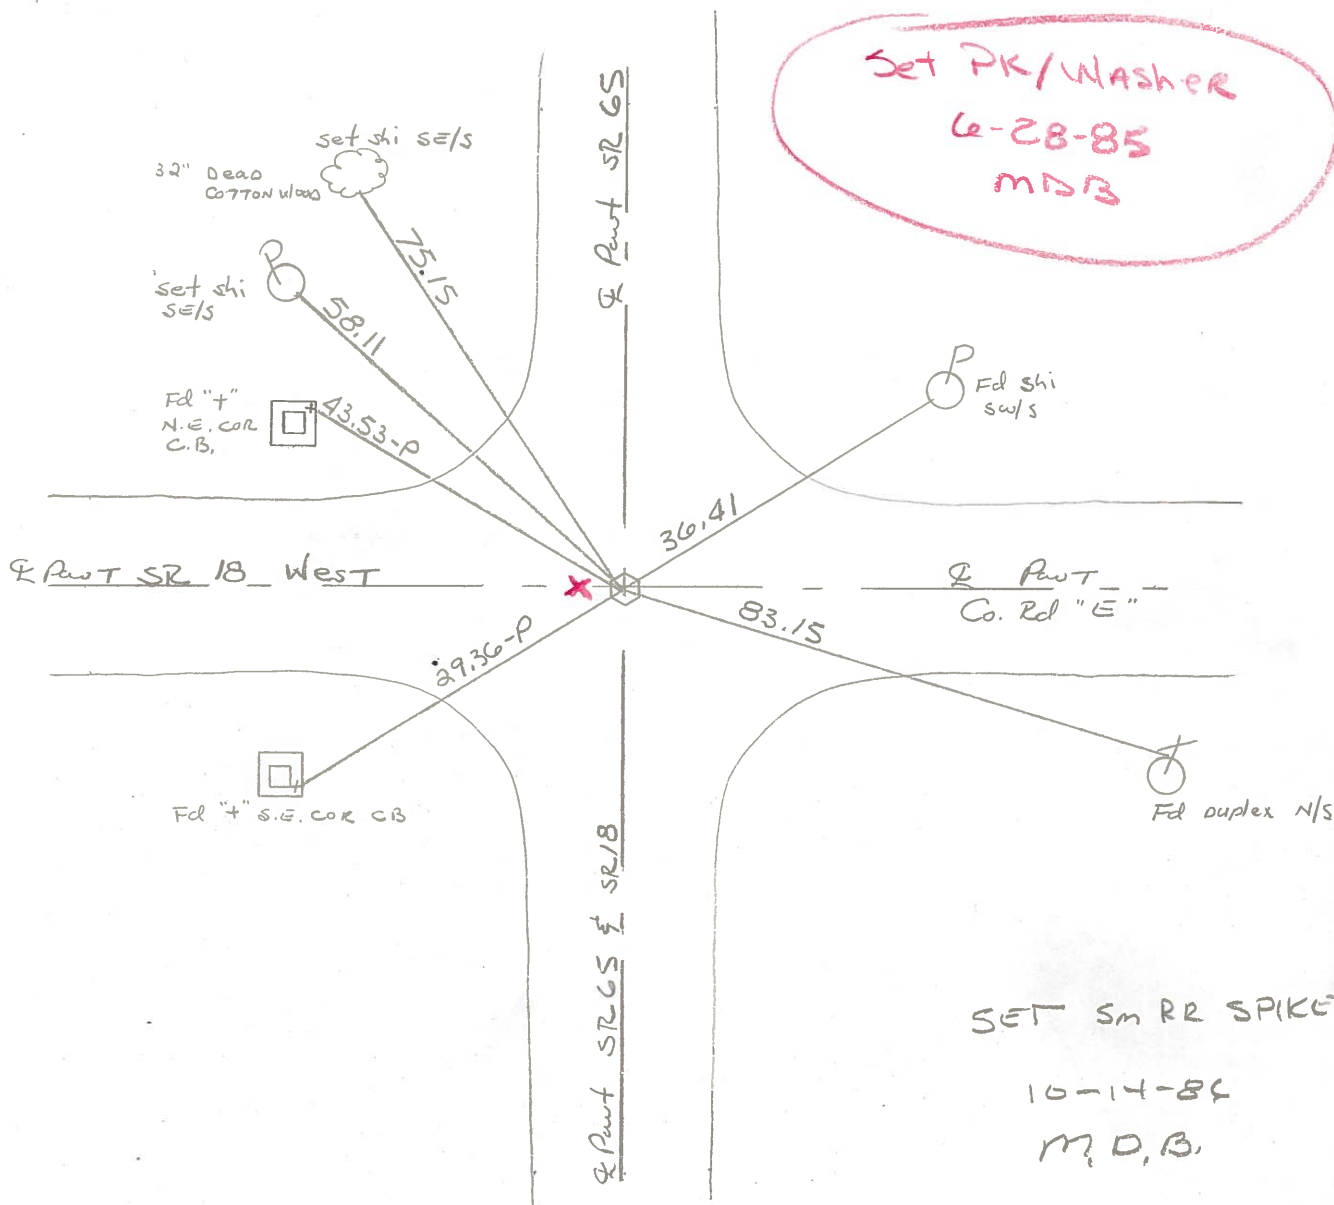 Set PK/WASHER
6-28-85
MDB
℄ Pavt SR 65
set shi SE/S
32" Dead
COTTONWOOD
75.15
set shi
SE/S
58.11
Fd "+"
N.E. COR
C.B.
43.53-P
Fd shi
SW/S
36.41
℄ PavT SR 18 West
X
℄ Pavt
Co. Rd "E"
83.15
29.36-P
Fd "+" S.E. COR CB
Fd Duplex N/S
℄ Pavt SR 65 & SR 18
SET Sm RR SPIKE
M.D.B.